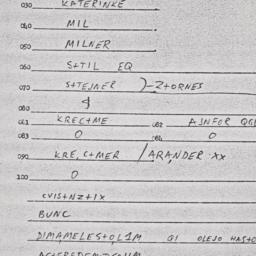 030 KATERINKE
040 MIL
050 MILNER
060 S+TIL EQ
070 S+TEJNER )-Z+ORNES
080
081 KREC+ME 082 AJNFOR
083 0 084 0
090 KRE,C+MER /ARANDER XX
100 0
CVIS+NZ+1X
BUNC
DIMAMELES+O,L1M G1 OLEJO